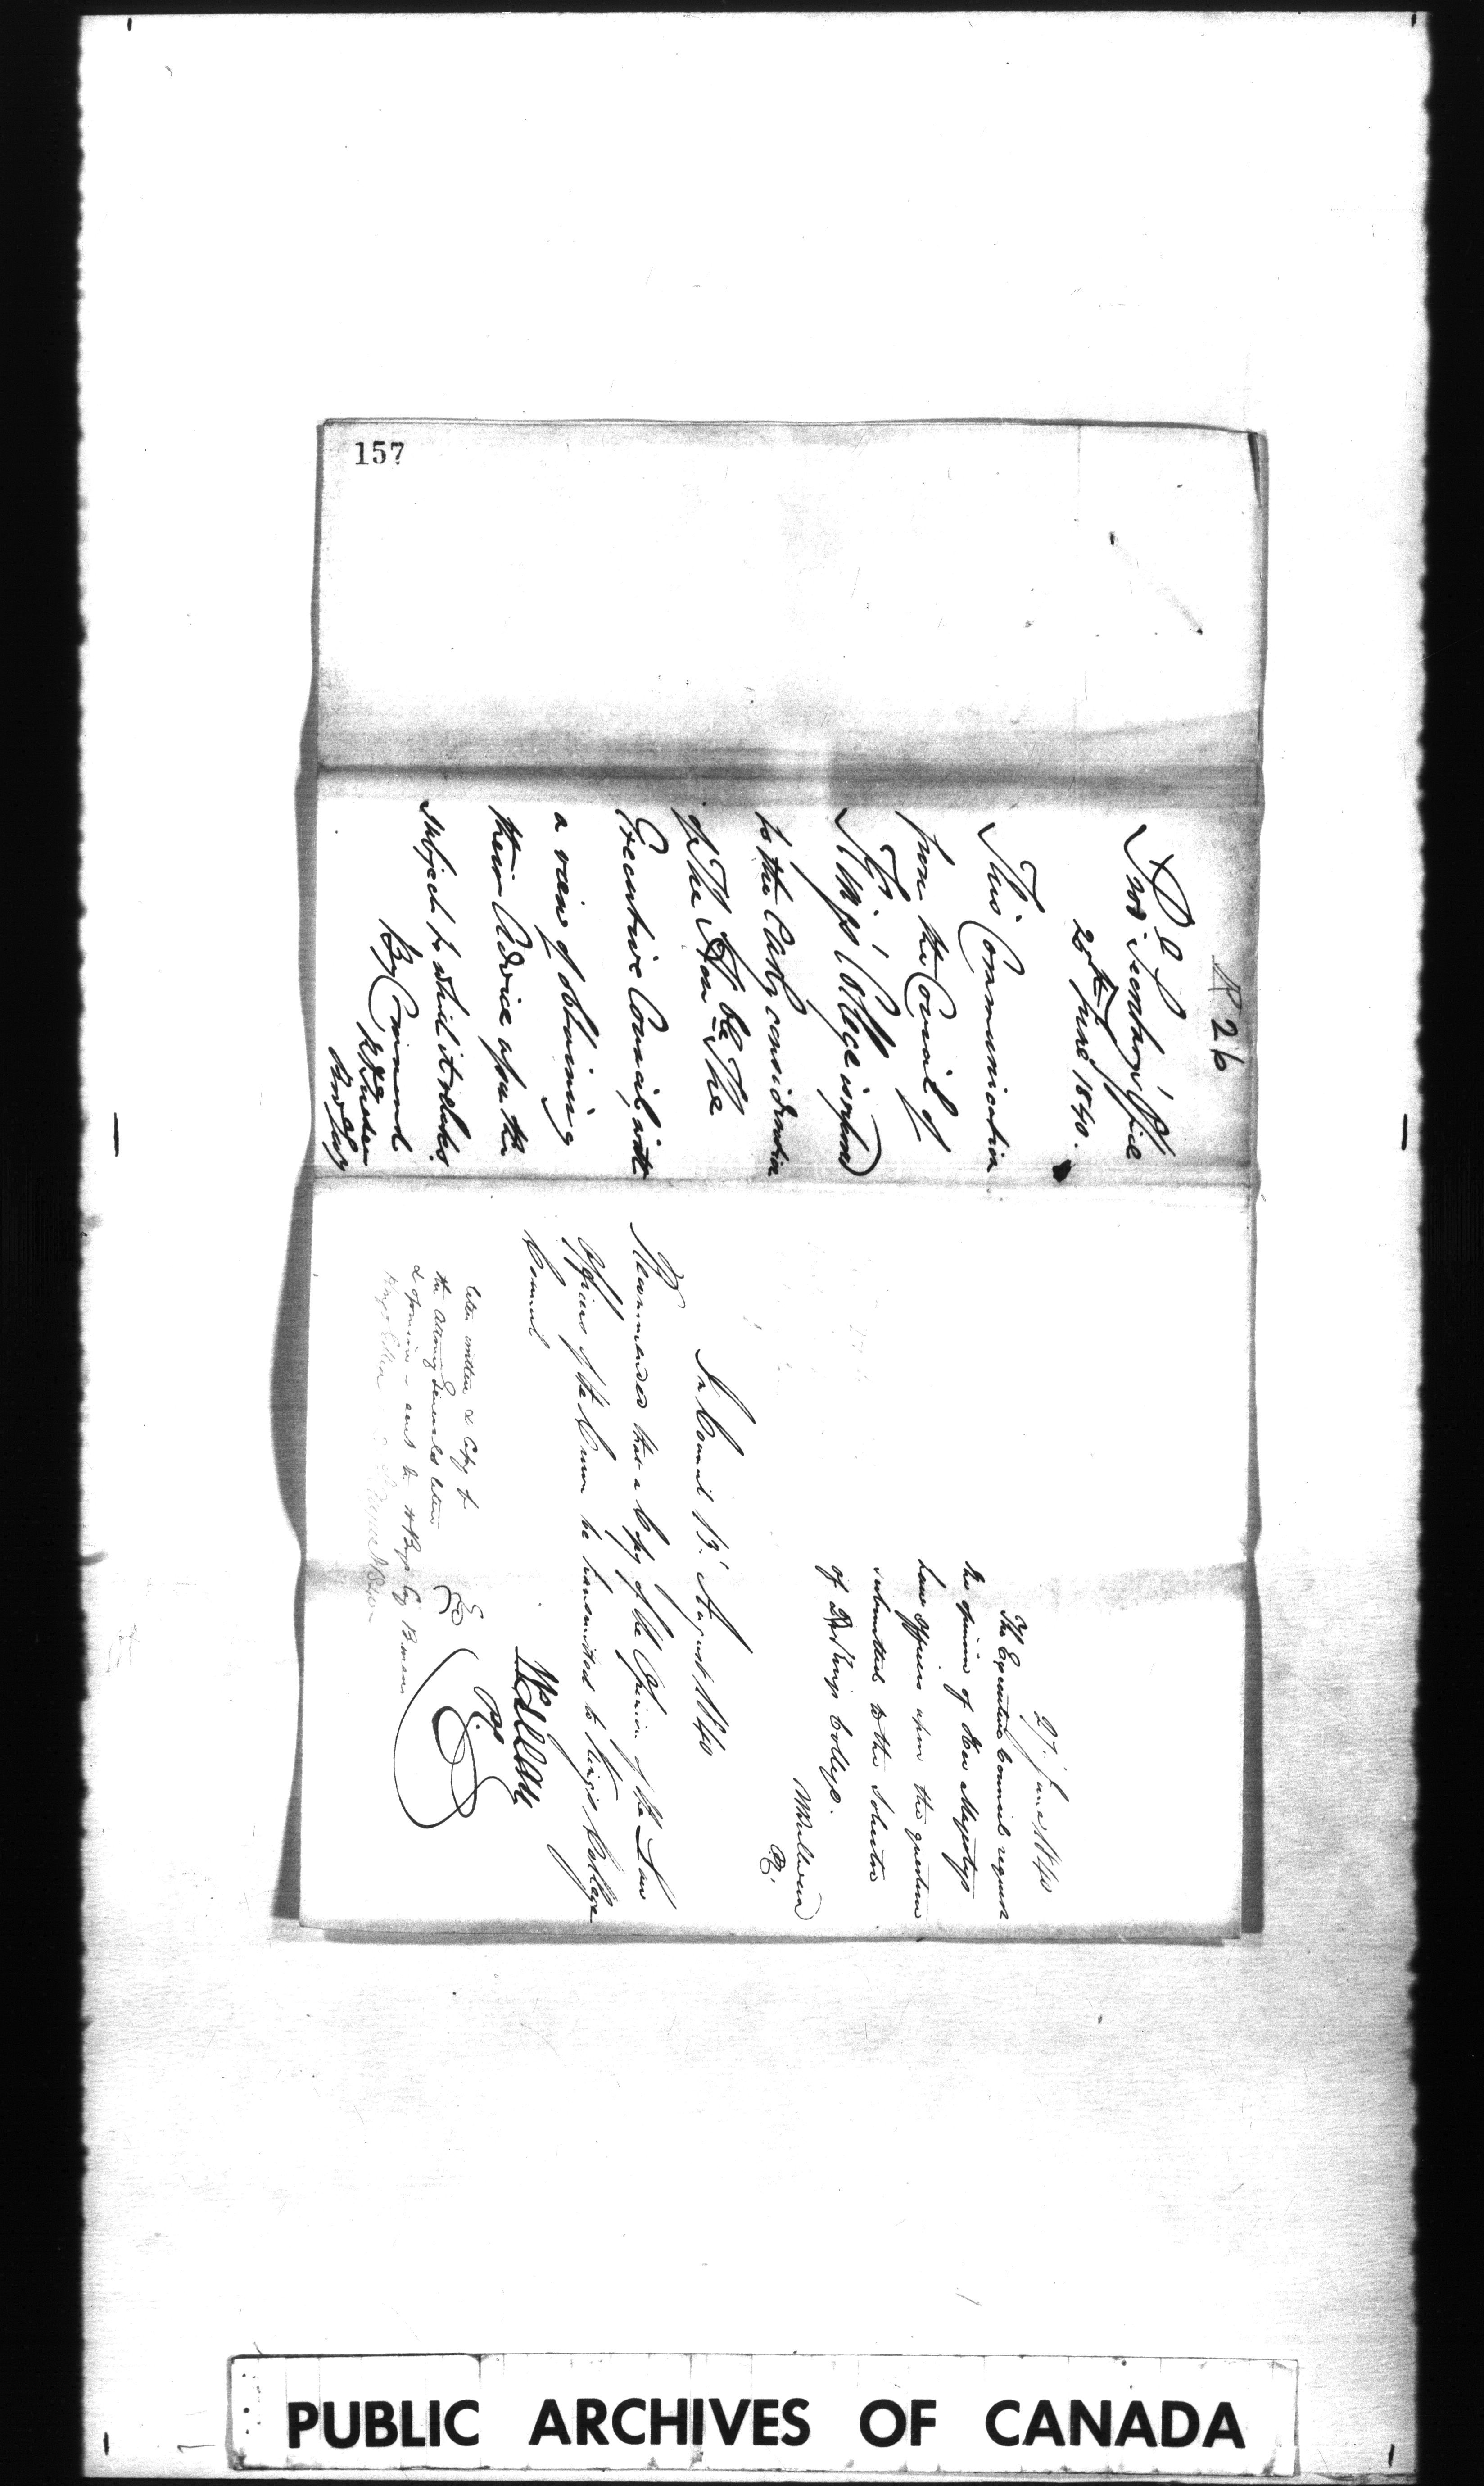 157
R 26
Prov. Secretary's Office
25th June 1840.
This Communication
from the Council of
King's College is referred
to the early consideration
of The Hon'ble The
Executive Council, with
a view of obtaining
their Advice upon the
subject to which it relates.
By Command
27. June 1840
The Executive Council request
the opinion of Her Majestys
Law Officers upon the question
submitted by the
of King's College.
In Council 13. August 1840
Recommended that a Copy of the Opinion of the Law
Officers of the Crown be transmitted to King's College
Council
letter written & Copy of
the Attorney Generals letter
& opinion - sent to
Kings College
PUBLIC ARCHIVES OF CANADA